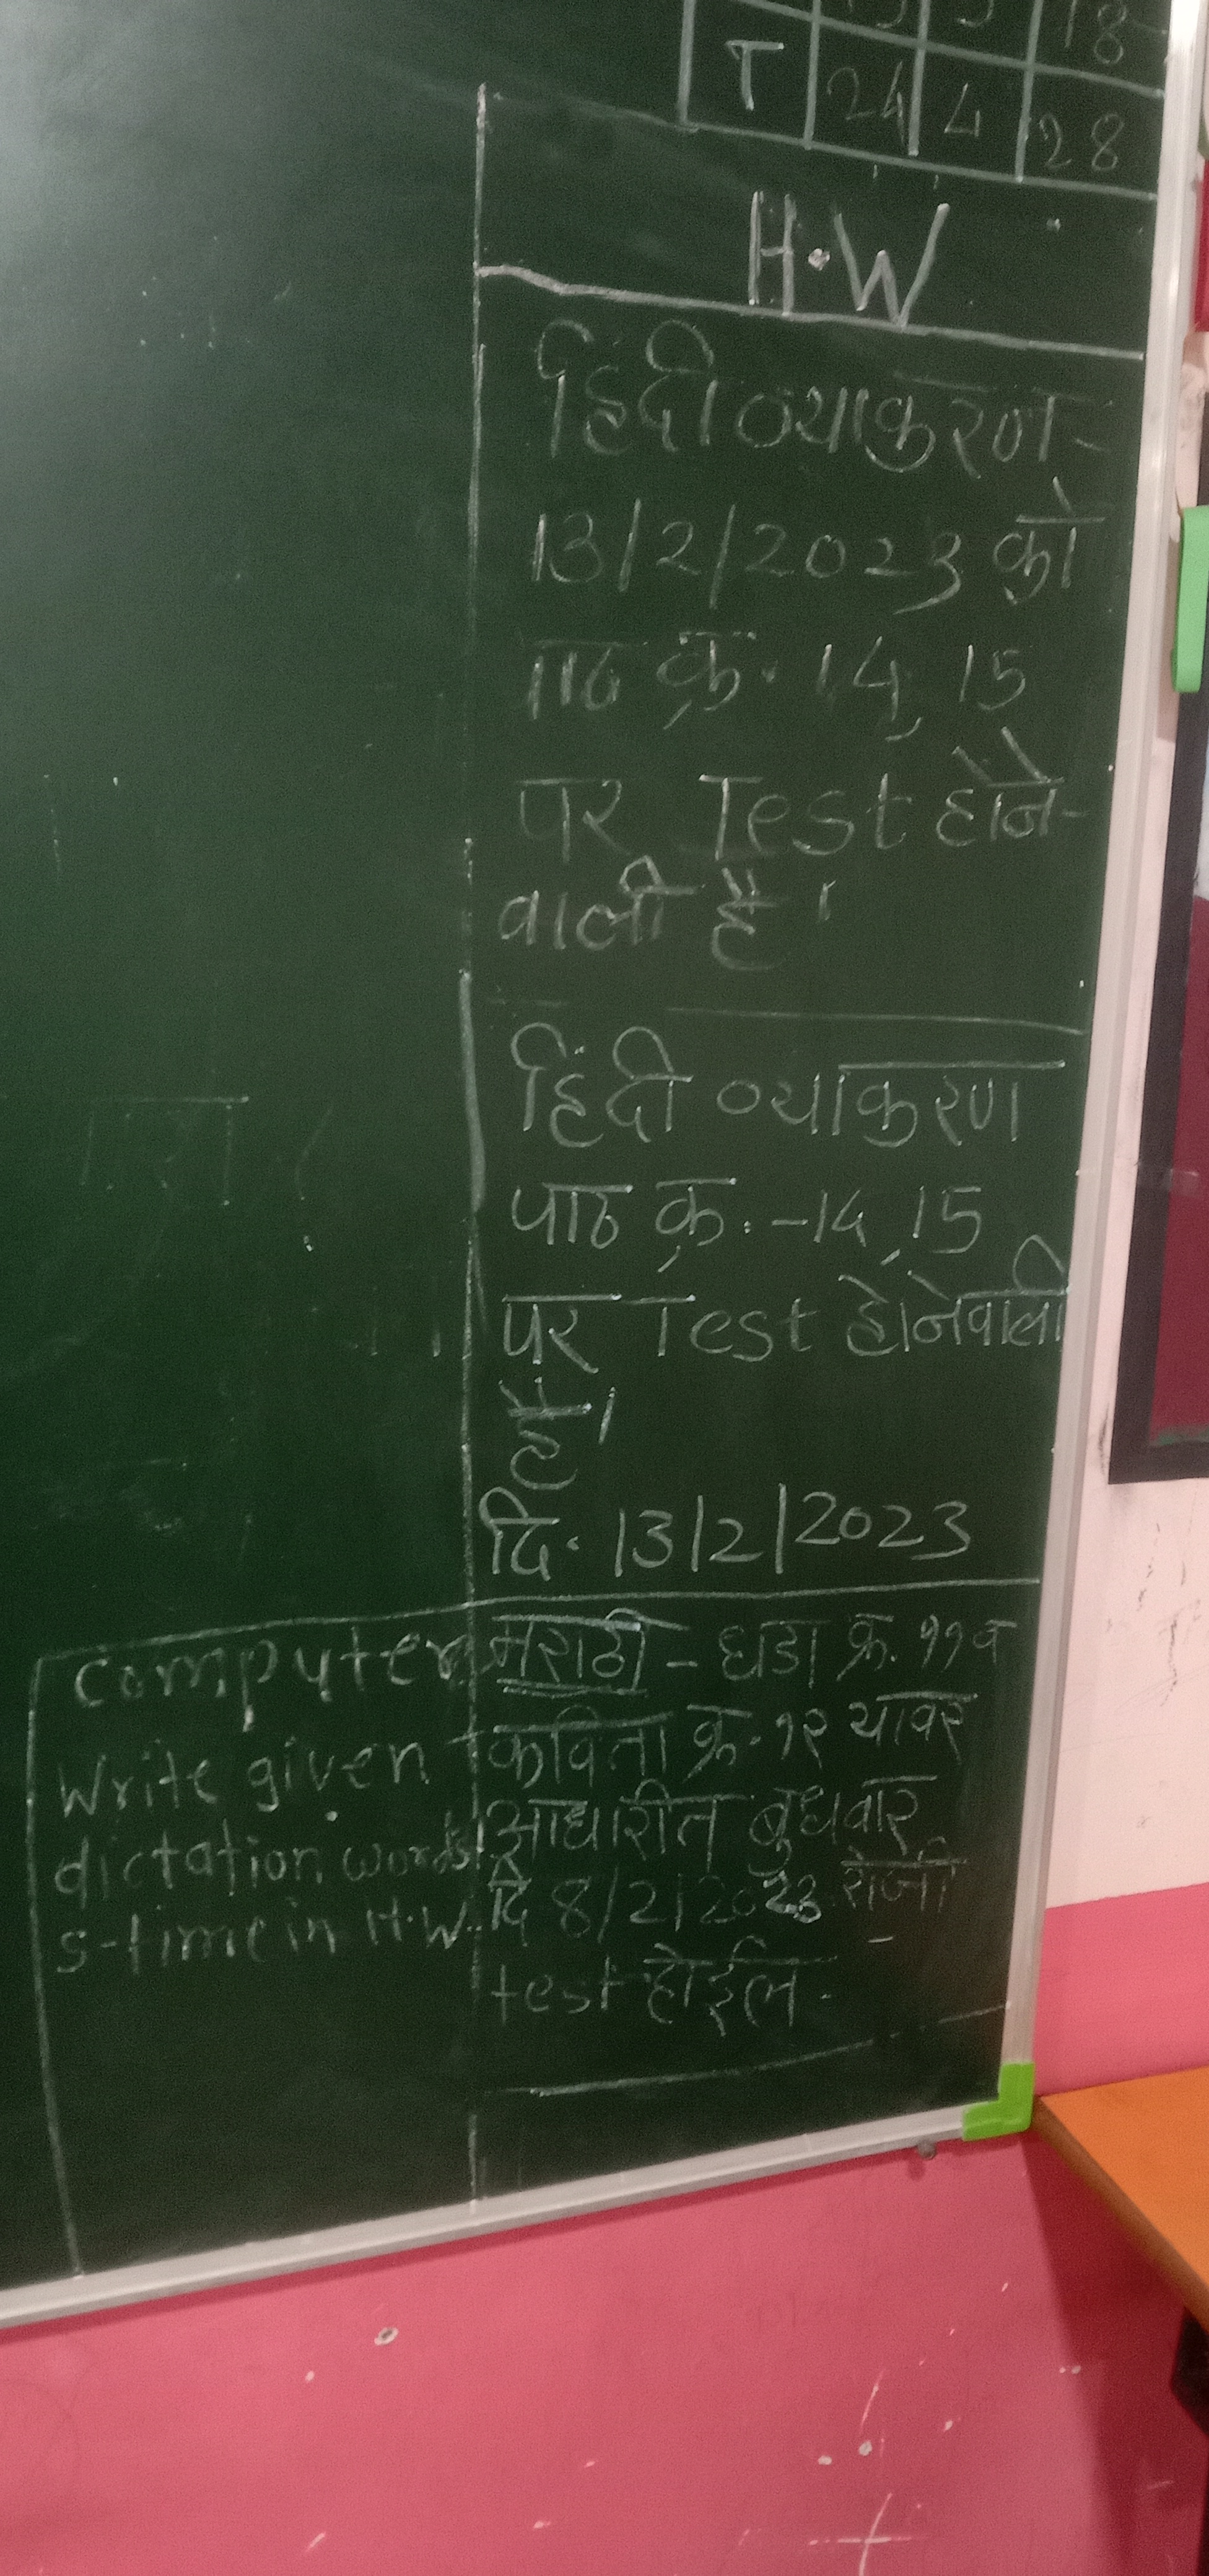 18
T 24 4 28
H.W
हिंदी व्याकरण-
13/2/2023 को
पाठ क्र. 14, 15
पर Test होने-
वाली है।
हिंदी व्याकरण
पाठ क्र. -14, 15
पर Test होनेवाली
है।
दि. 13/2/2023
मराठी - धडा क्र. ११व
कविता क्र. १२ यावर
आधारीत बुधवार
दि 8/2/2023 रोजी
test होईल.
Computer
Write given
dictation words
5-time in H.W.